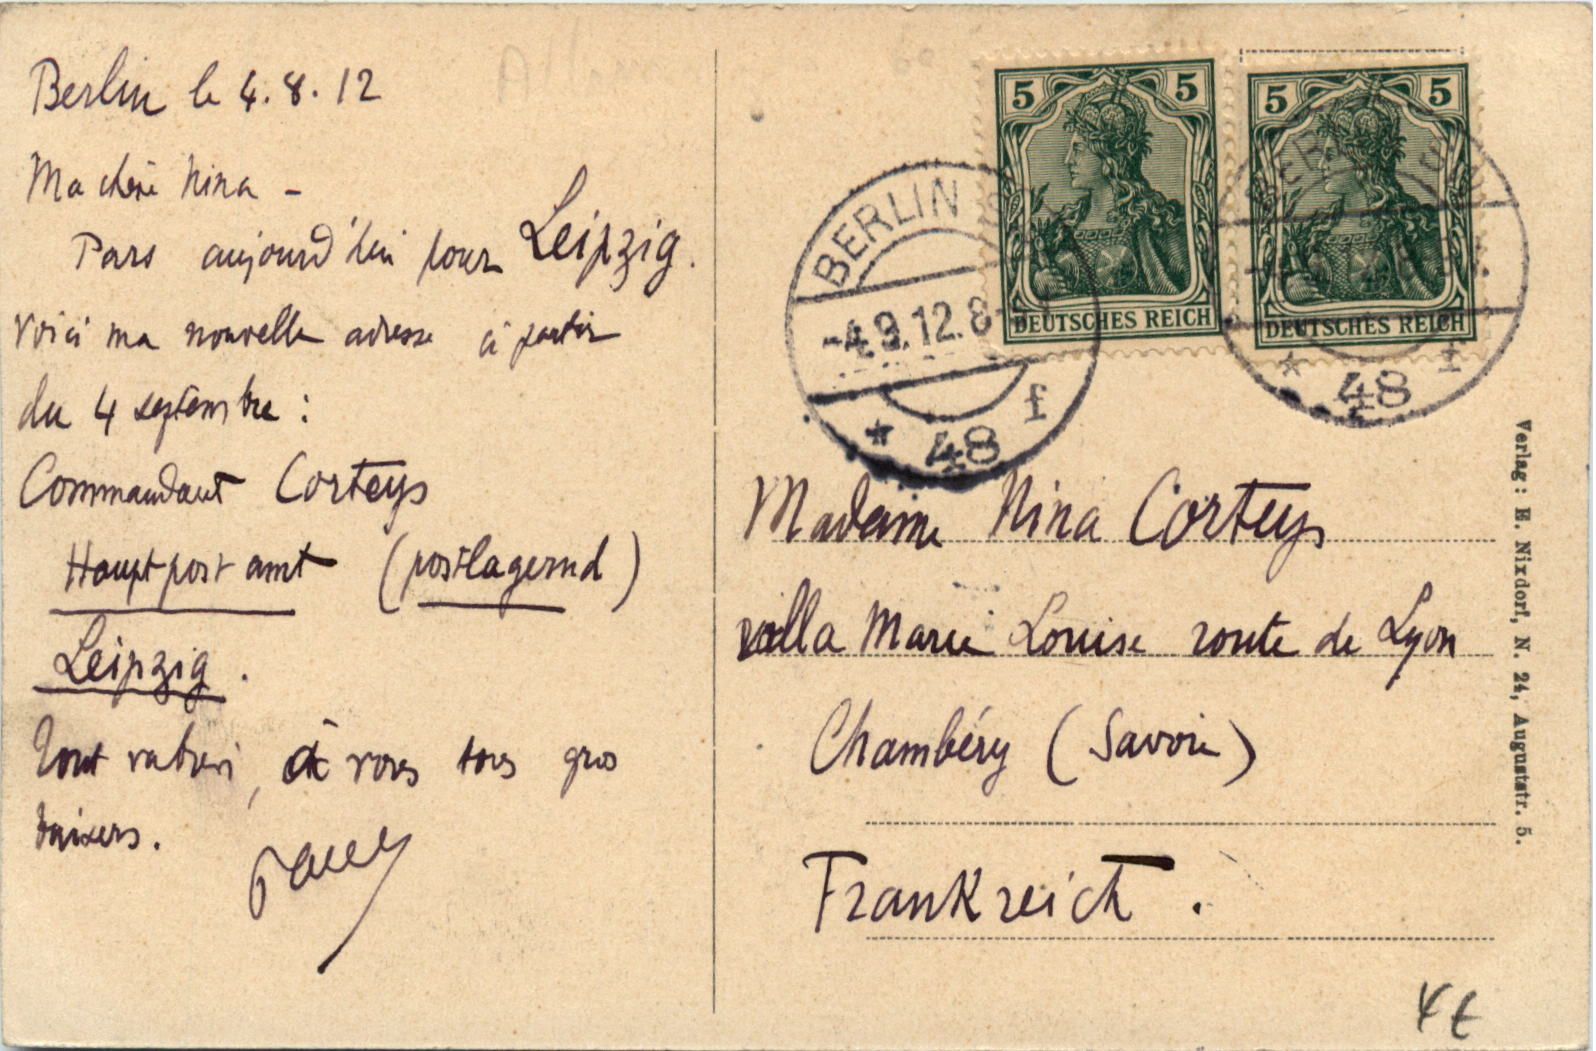 Berlin le 4.8.12
Ma chère Nina -
Pars aujourd'hui pour Leipzig.
Voici ma nouvelle adresse à partir
du 4 septembre :
Commandant Corteys
Hauptpost amt (postlagernd)
Leipzig.
Tout va bien, à vous tous gros
baisers.
Paul
5 5
DEUTSCHES REICH
5 5
DEUTSCHES REICH
BERLIN
-4.9.12.8-
* 48 f
BERLIN
* 48 f
Madame Nina Corteys
villa Marie Louise route de Lyon
Chambéry (Savoie)
Frankreich.
Verlag: E. Nixdorf, N. 24, Auguststr. 5.